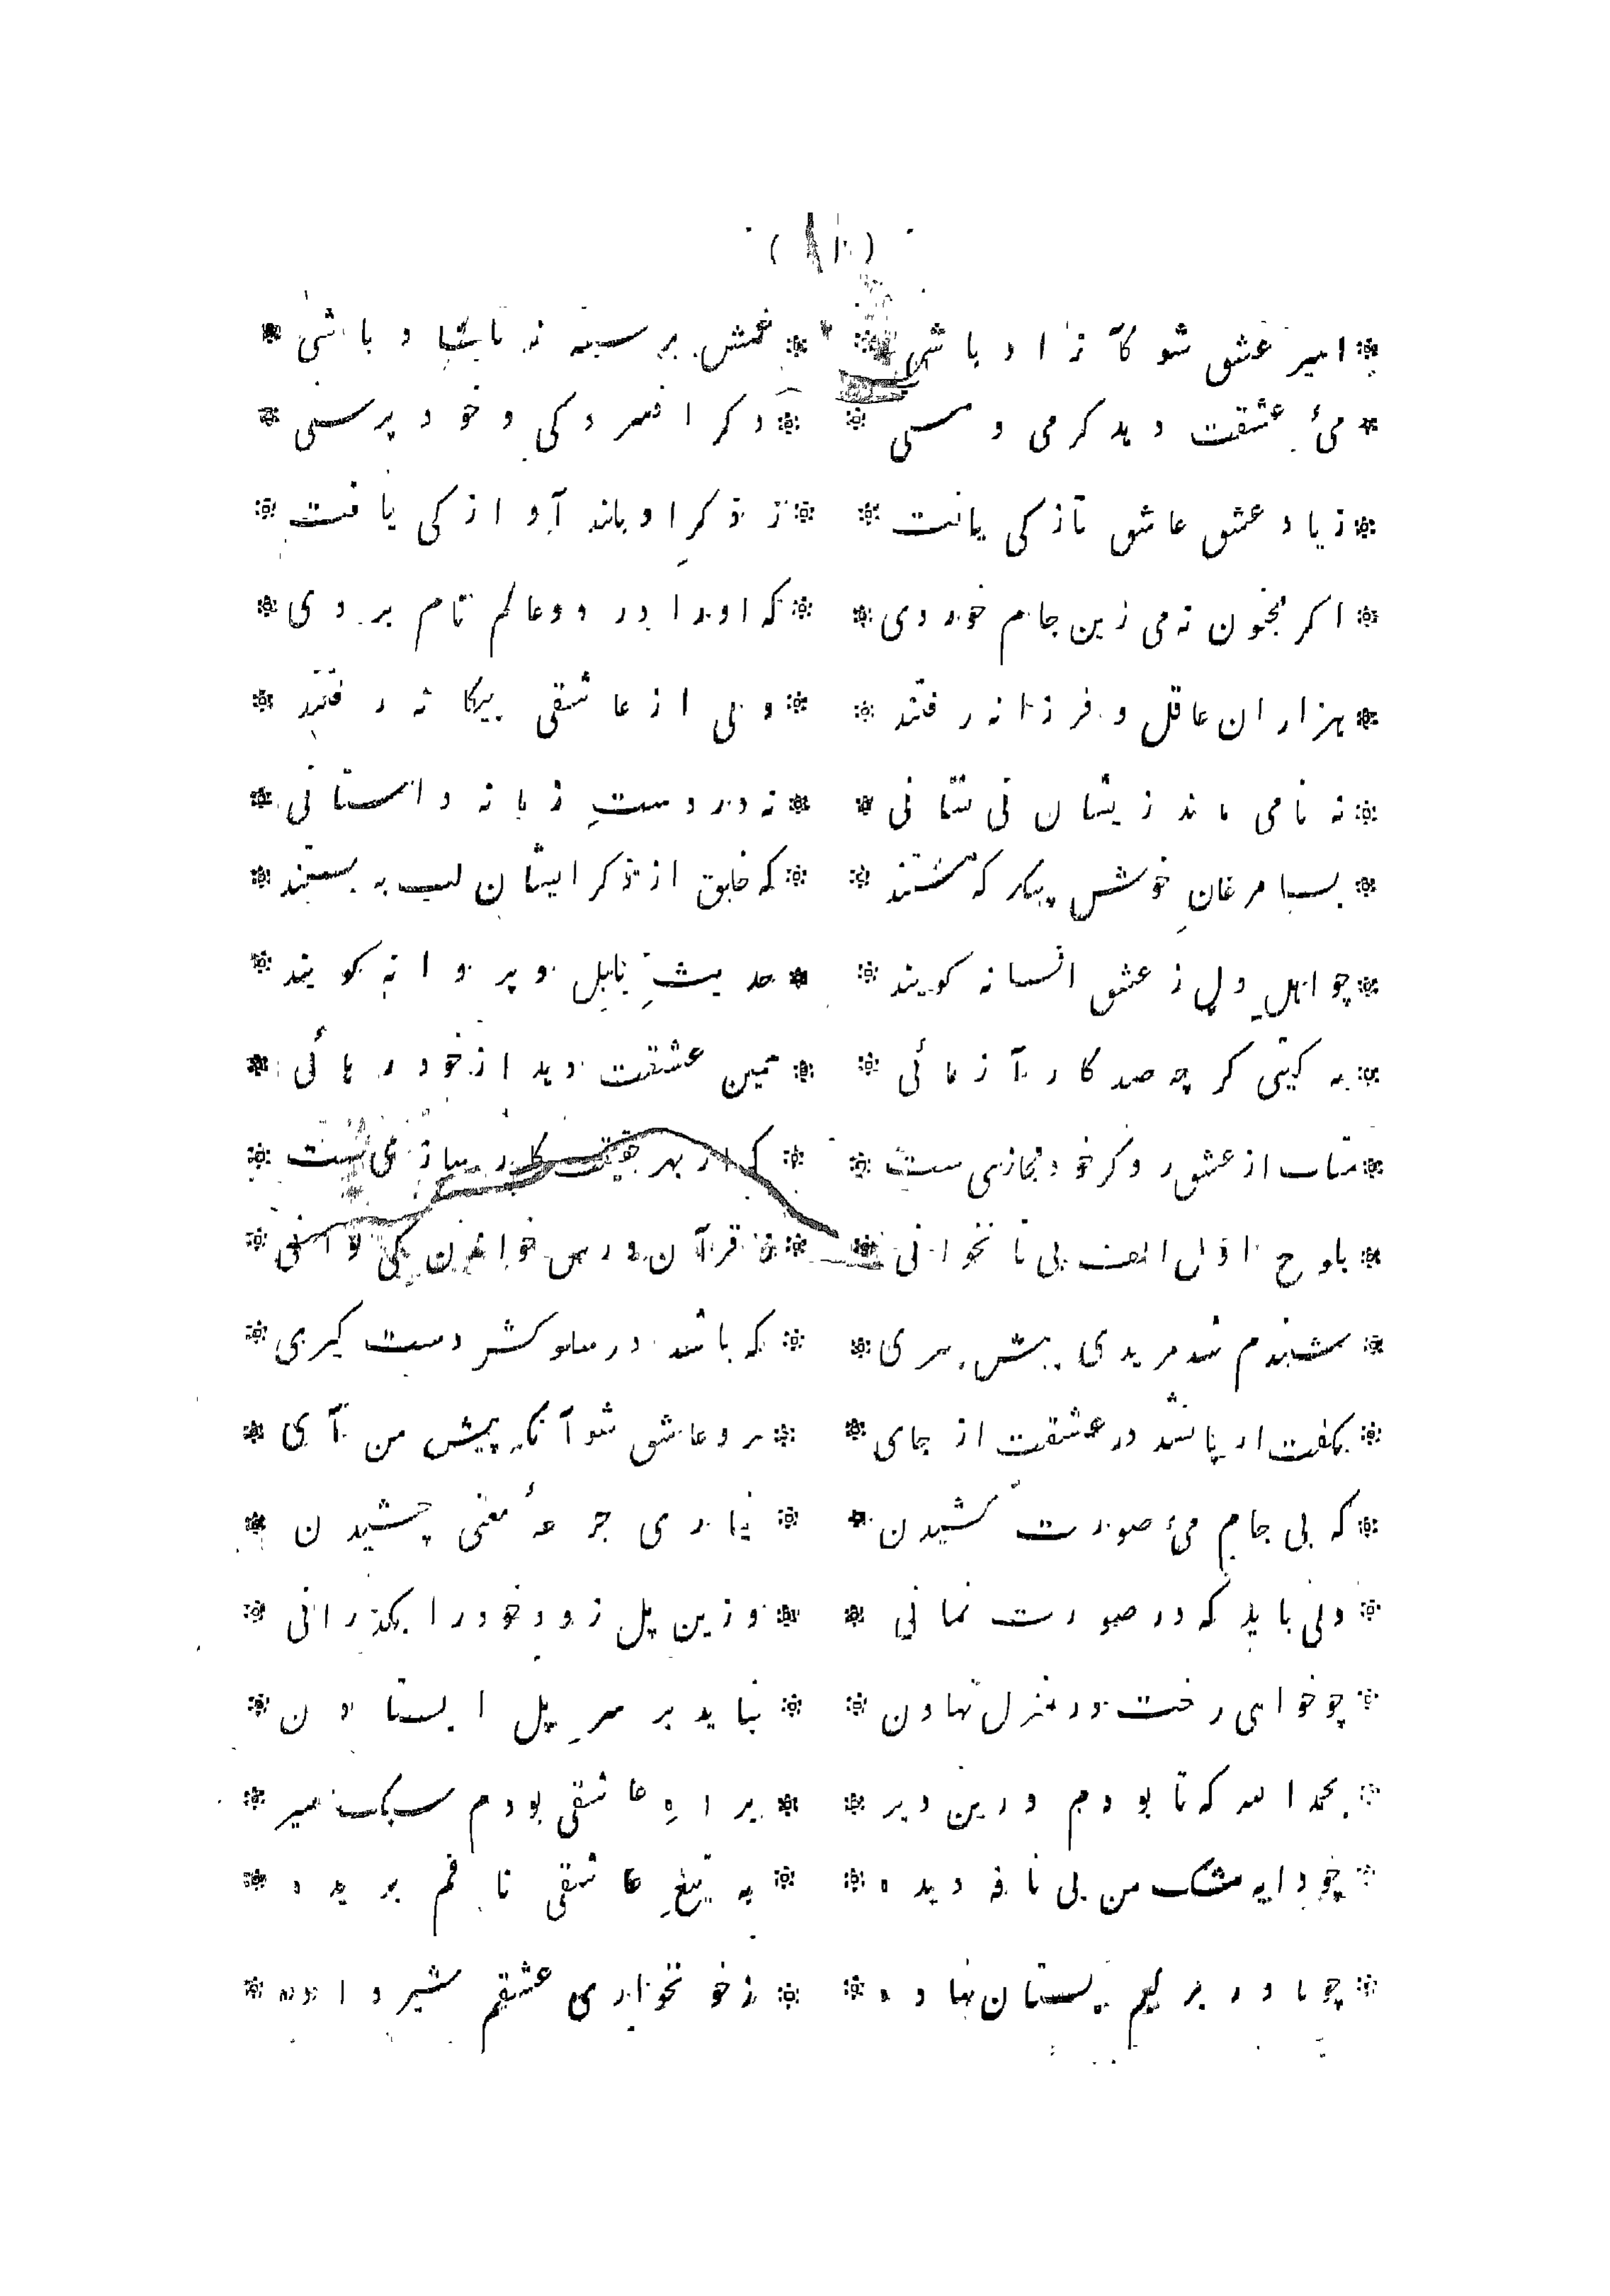 * اسیر عشق شو کآزاد باشی * * غمش بر سینه نه تا شاد باشی *
* مئ عشقت دهد کرمی و مستی * * دکر افسردکی و خود پرستی *
* زیاد عشق عاشق تازکی یافت * * ز ذکرِ او بلند آوازکی یافت *
* اکر مجنون نه می زین جام خوردی * * که او را در دو عالم نام بردی *
* هزاران عاقل و فرزانه رفتند * * ولی از عاشقی بیکانه رفتند *
* نه نامی ماند زیشان نی نشانی * * نه در دستِ زمانه داستانی *
* بسا مرغانِ خوش پیکر که هستند * * که خلق از ذکر ایشان لب به بستند *
* چو اهلِ دل ز عشق افسانه کویند * * حدیثِ بلبل و پروانه کویند *
* به کیتی کر چه صد کار آزمائی * * همین عشقت دهد از خود رهائی *
* متاب از عشق رو کر خود مجازی ست * * که از بهر حقیقت کارسازی ست *
* بلوح اوّل الف بی تا نخوانی * * ز قرآن درس خواندن کی توانی *
* شنیدم شد مریدی پیش پیری * * که باشد در سلوکش دست کیری *
* بکفت ار پا نشد در عشقت از جای * * برو عاشق شو آنکه پیش من آی *
* که بی جامِ مئ صورت کشیدن * * نیاری جرعهٔ معنی چشیدن *
* ولی باید که در صورت نمانی * * وزین پل زود خود را بکذرانی *
* چو خواهی رخت در منزل نهادن * * نباید بر سرِ پل ایستادن *
* بحمد الله که تا بودم درین دیر * * براهِ عاشقی بودم سبک سیر *
* چو دایه مشک من بی نافه دیده * * به تیغِ عاشقی نافم بریده *
* چو مادر بر لبم پستان نهاده * * ز خونخواری عشقم شیر داده *